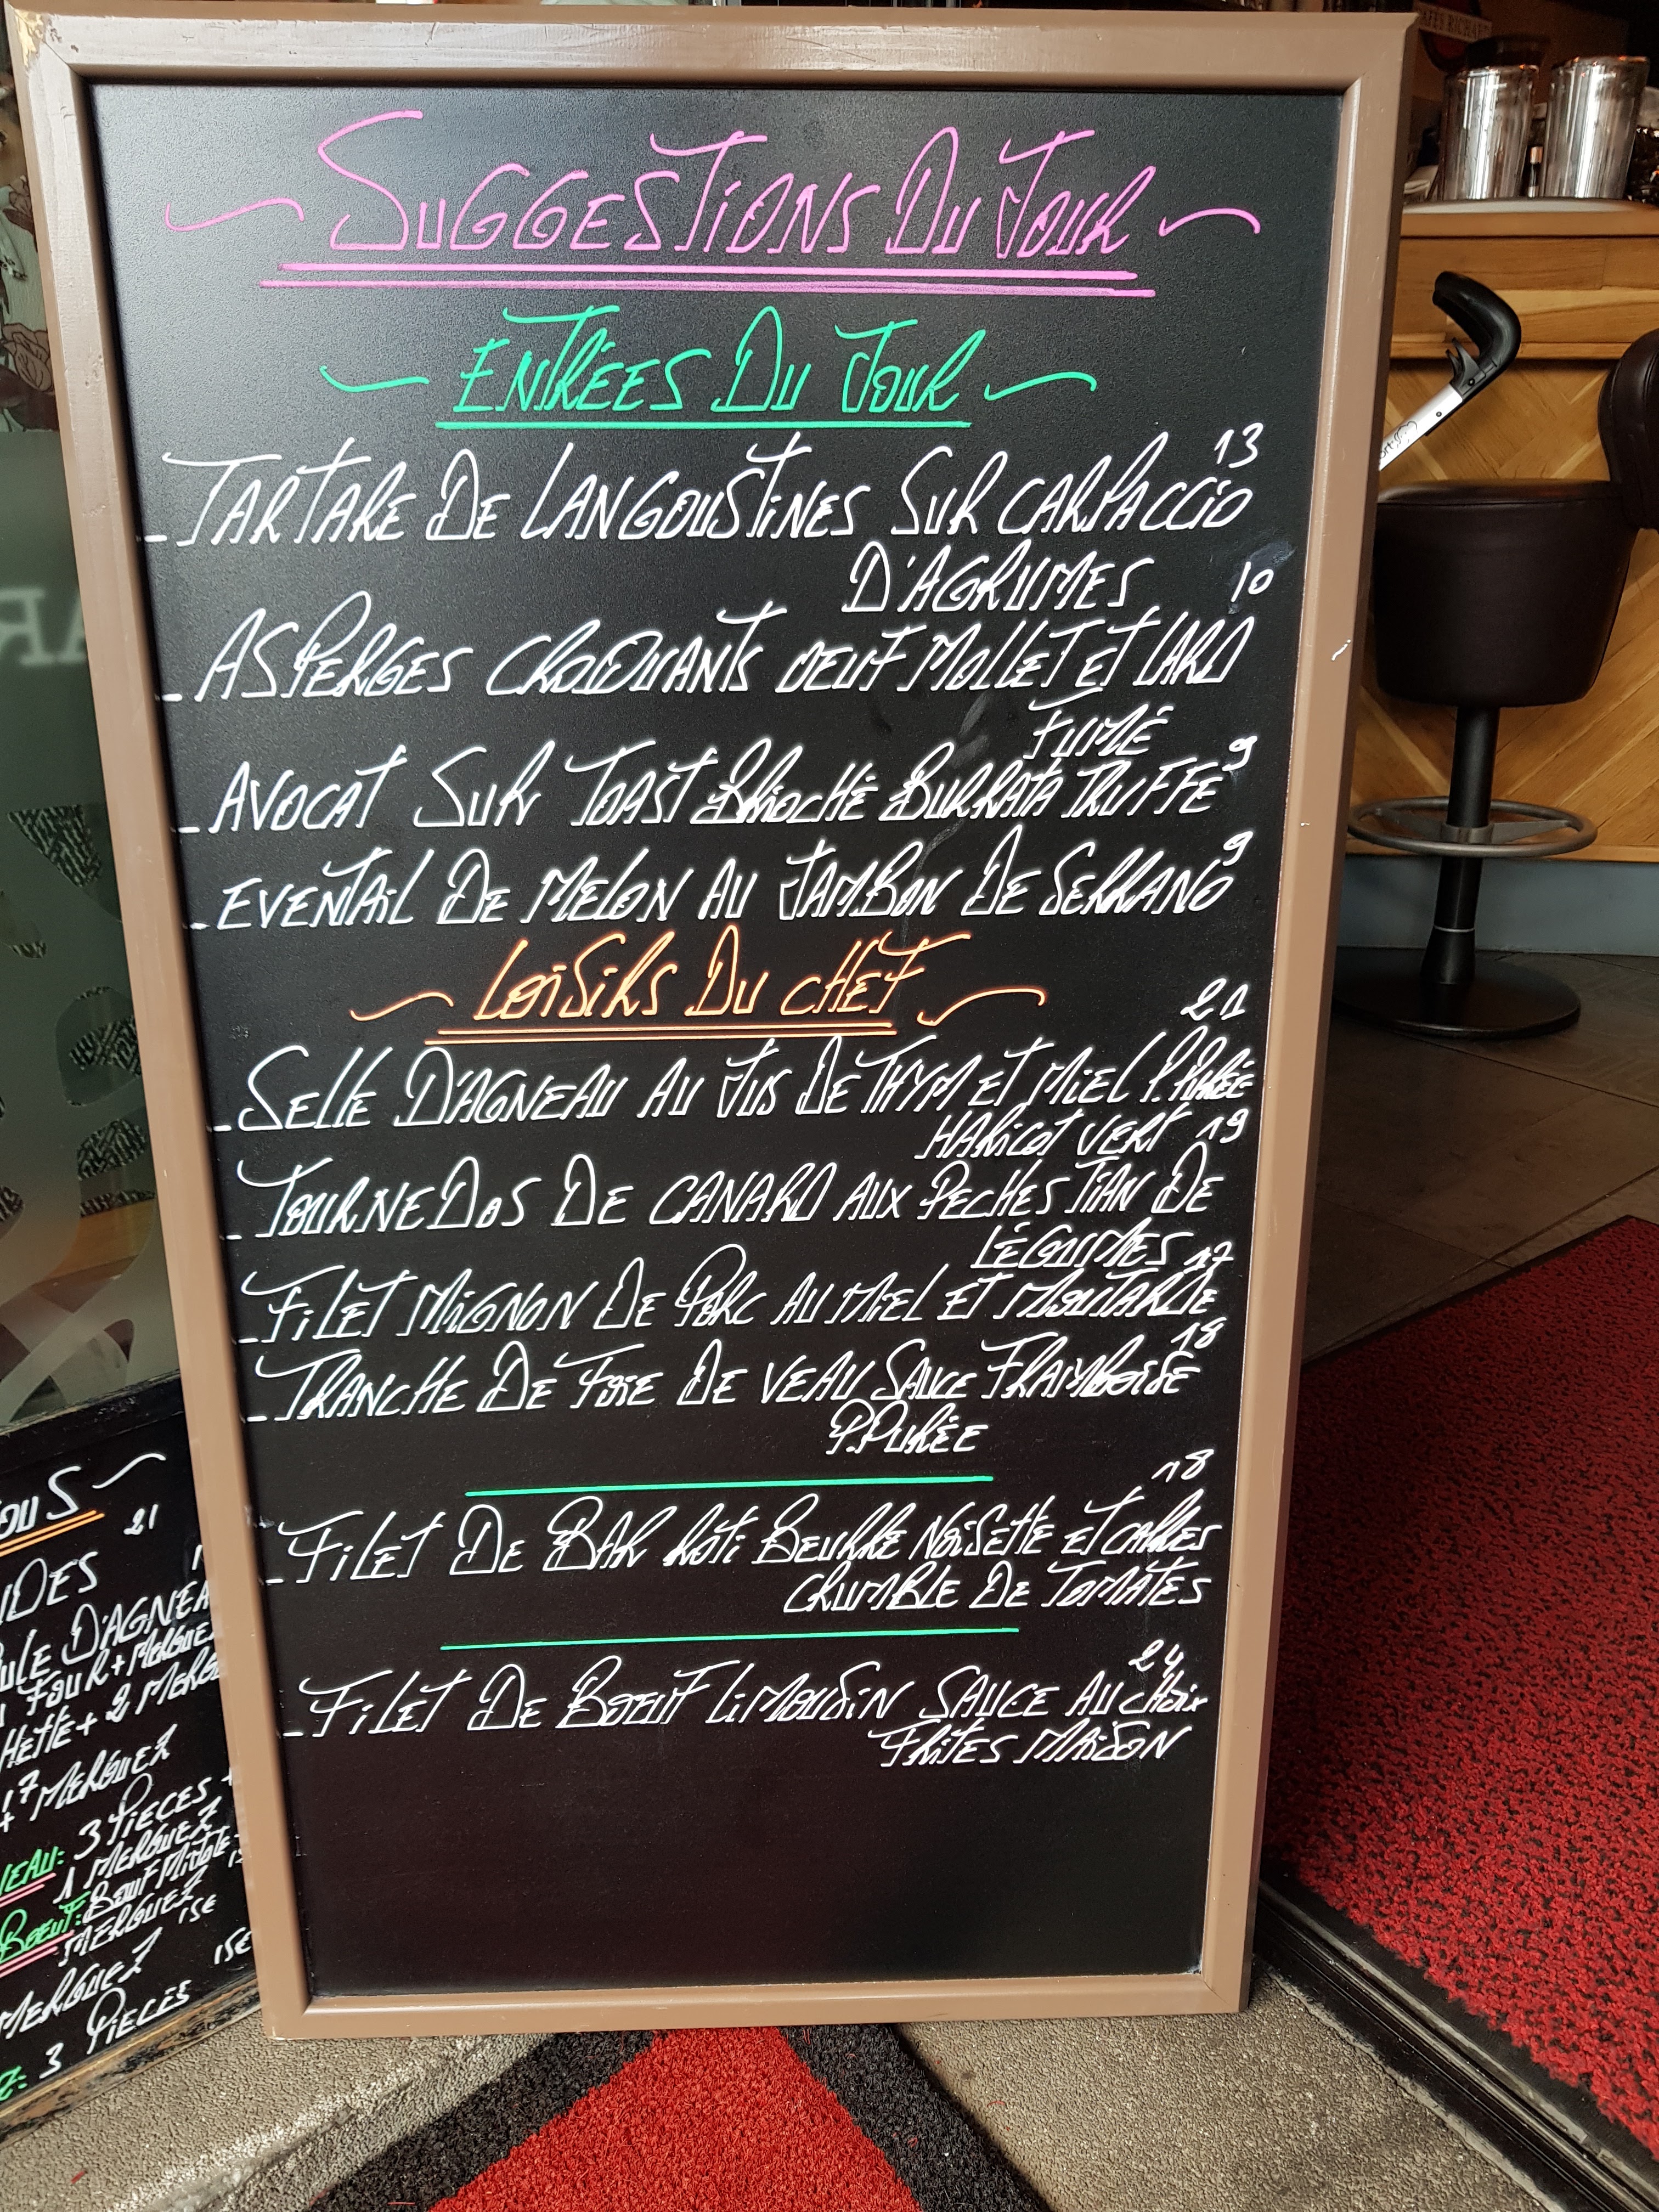 SUGGESTIONS DU JOUR
ENTRÉES DU JOUR
13
_ TARTARE DE LANGOUSTINES SUR CARPACCIO
D'AGRUMES 10
_ ASPERGES CROQUANTS OEUF MOLLET ET LARD
FUMÉ
9
_ AVOCAT SUR TOAST BRIOCHÉ BURRATA TRUFFE
9
_ EVENTAIL DE MELON AU JAMBON DE SERRANO
LOISIRS DU CHEF
21
_ SELLE D'AGNEAU AU JUS DE THYM ET MIEL P.PURÉE
HARICOT VERT 19
_ TOURNEDOS DE CANARD AUX PECHES TIAN DE
LÉGUMES 17
_ FILET MIGNON DE PORC AU MIEL ET MOUTARDE
18
_ TRANCHE DE FOIE DE VEAU SAUCE FRAMBOISE
P.PURÉE
18
_ FILET DE BAR ROTI BEURRE NOISETTE ET CAPRES
CRUMBLE DE TOMATES
24
_ FILET DE BOEUF LIMOUSIN SAUCE AU CHOIX
FRITES MAISON
OUS
21
DES
ULE D'AGNEA
FOUR + MERGUE
HETTE + 2 MERG
7 MERGUEZ
3 PIECES +
NEAU:
1 MERGUEZ
BOEUF:
MERGUEZ 15€
15€
MERGUEZ
3 PIECES